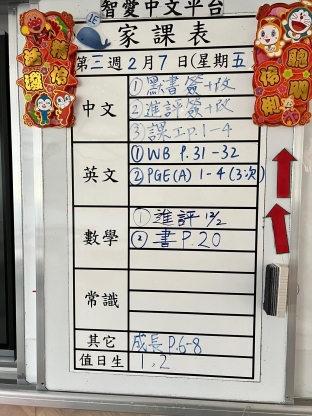 智愛中文平台
家課表
1E
第三週2月7日(星期五
中文
①默書簽+改
②進評簽+改
③課工p.1-4
英文
①WB P.31-32
②PGE(A) 1-4(3次)
數學
①進評12/2
②書P.20
常識
其它
成長P.6-8
值日生
1,2